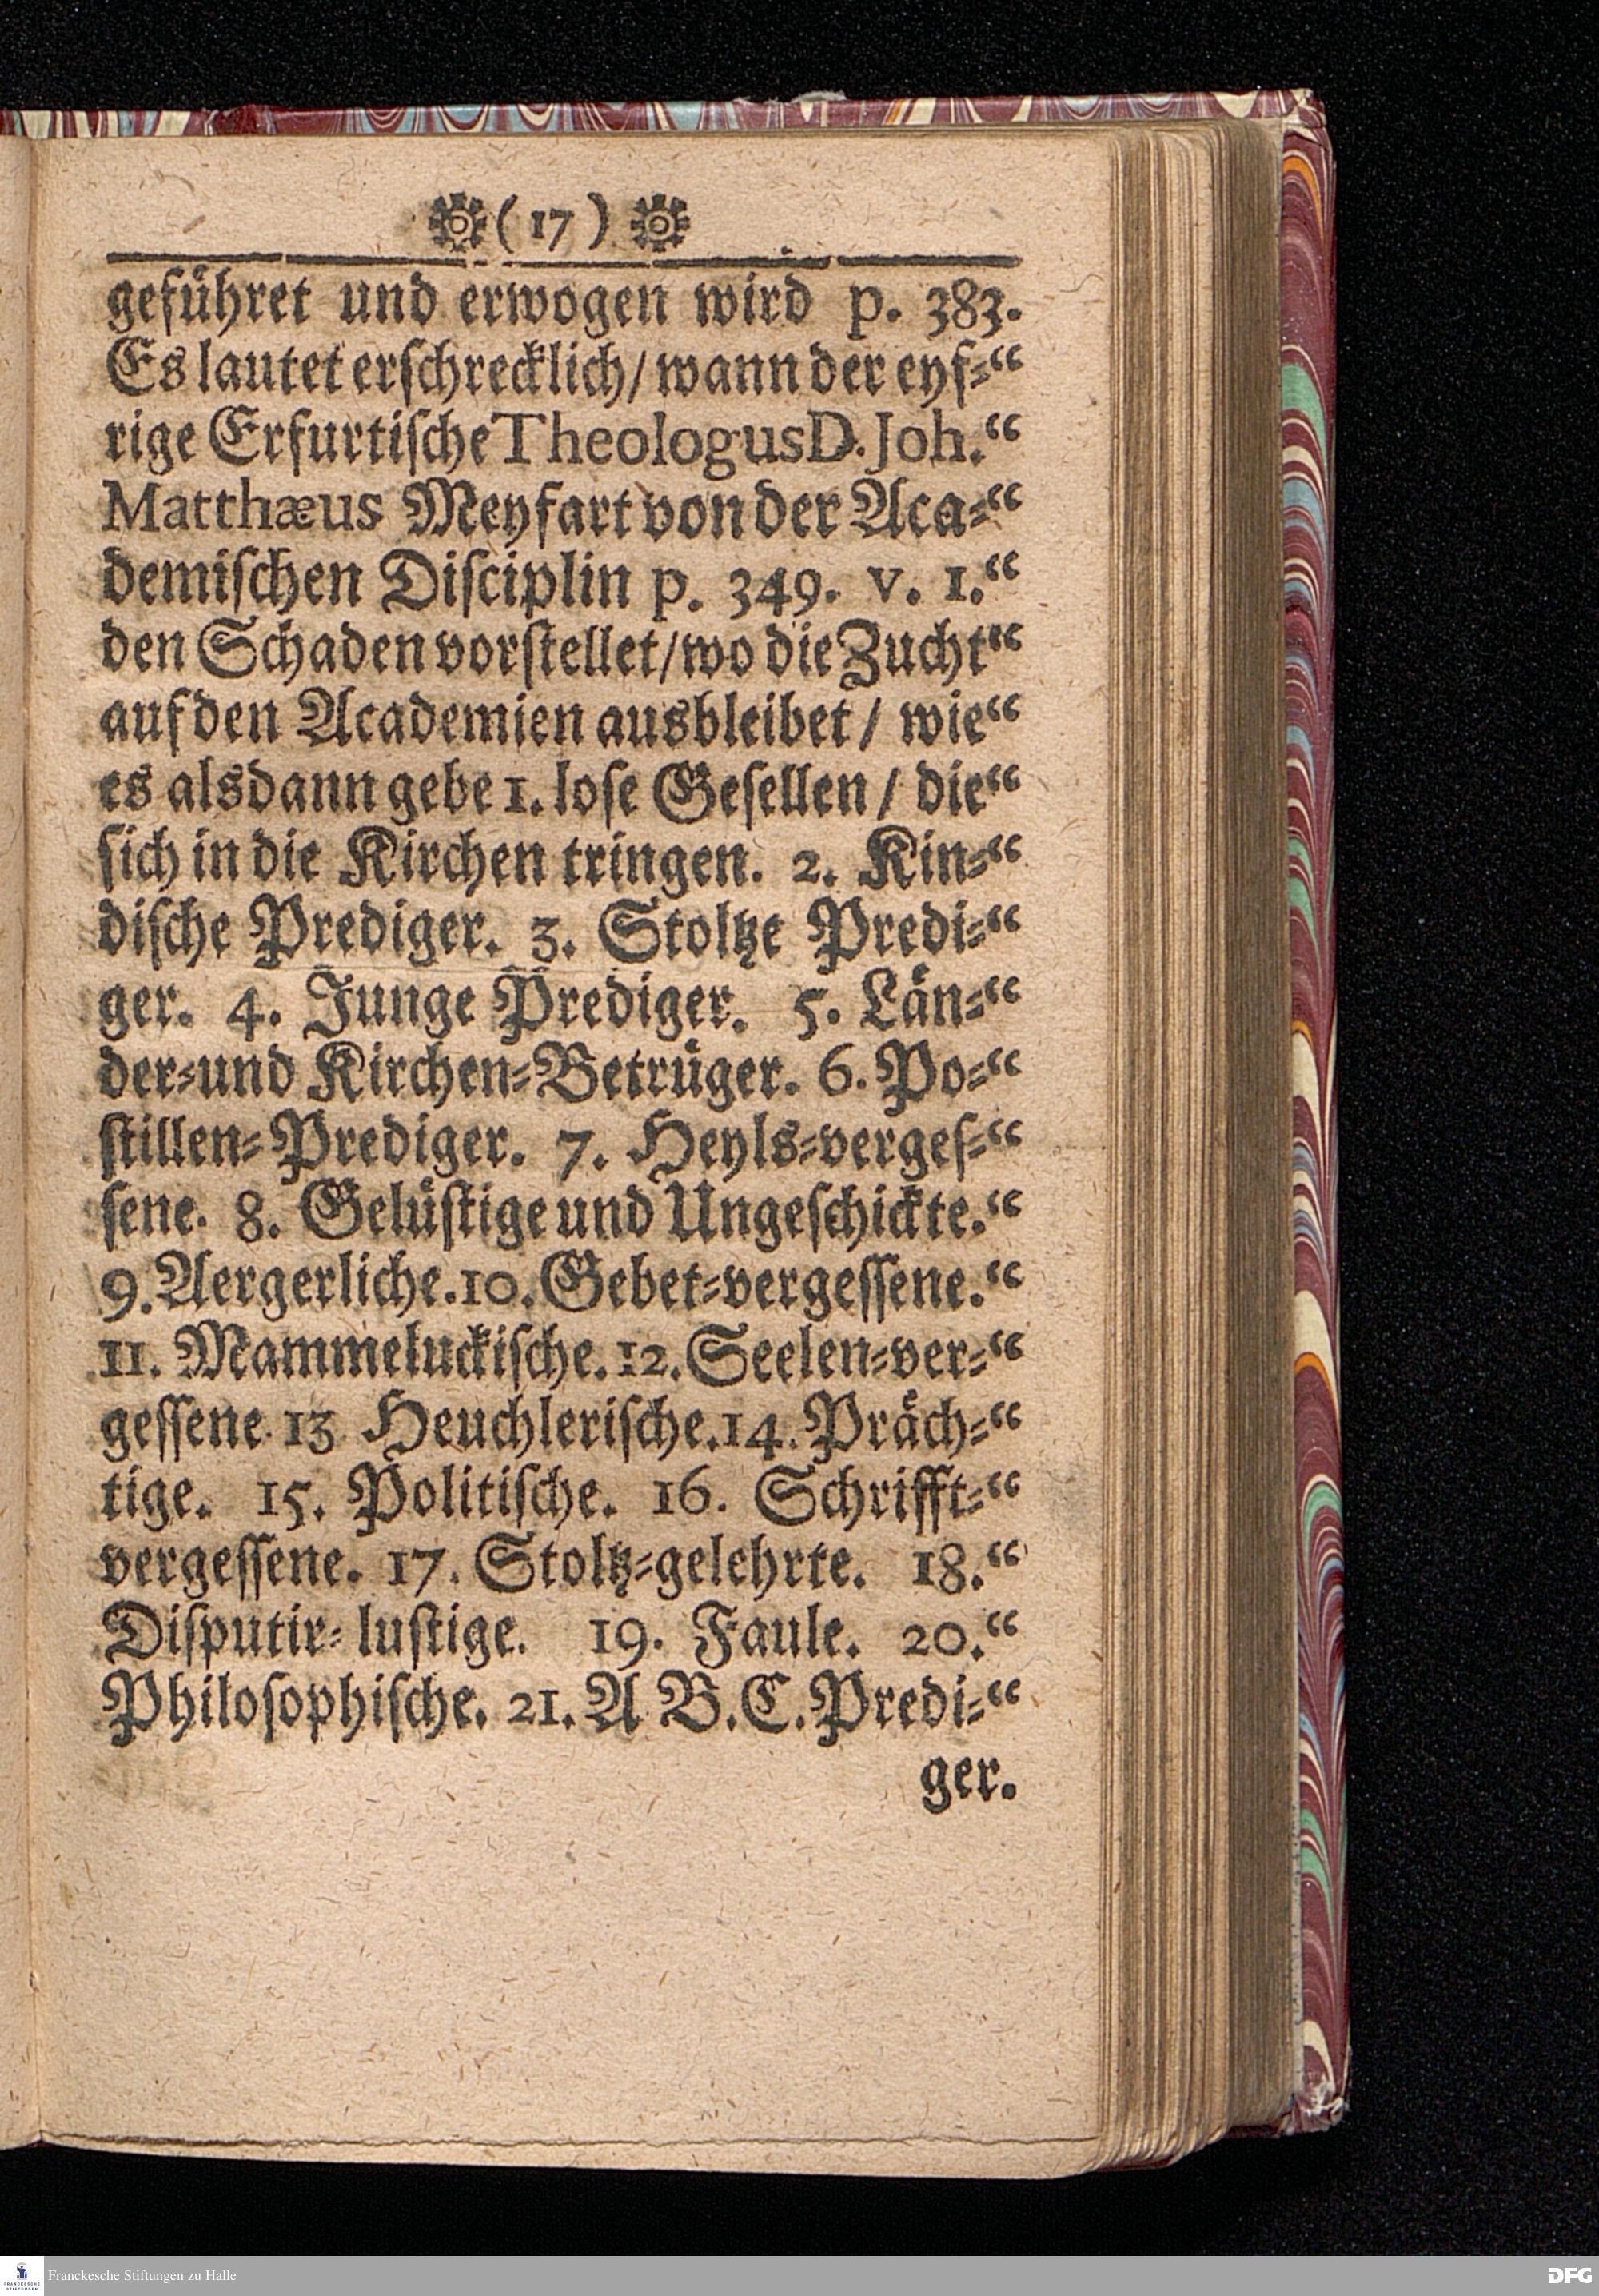 ( 17 )
geführet und erwogen wird p. 383.
Es lautet erschrecklich / wann der eyf-“
rige Erfurtische Theologus D. Joh.“
Matthæus Meyfart von der Aca-“
demischen Disciplin p. 349. v. 1.“
den Schaden vorstellet / wo die Zucht“
auf den Academien ausbleibet / wie“
es alsdann gebe 1. lose Gesellen / die“
sich in die Kirchen tringen. 2. Kin-“
dische Prediger. 3. Stoltze Predi-“
ger. 4. Junge Prediger. 5. Län-“
der-und Kirchen-Betrüger. 6. Po-“
stillen-Prediger. 7. Heyls-verges-“
sene. 8. Gelüstige und Ungeschickte.“
9. Aergerliche. 10. Gebet-vergessene.“
11. Mammeluckische. 12. Seelen-ver-“
gessene. 13 Heuchlerische. 14. Präch-“
tige. 15. Politische. 16. Schrifft-“
vergessene. 17. Stoltz-gelehrte. 18.“
Disputir-lustige. 19. Faule. 20.“
Philosophische. 21. A B. C. Predi-“
ger.
FRANCKESCHE STIFTUNGEN
Franckesche Stiftungen zu Halle
DFG